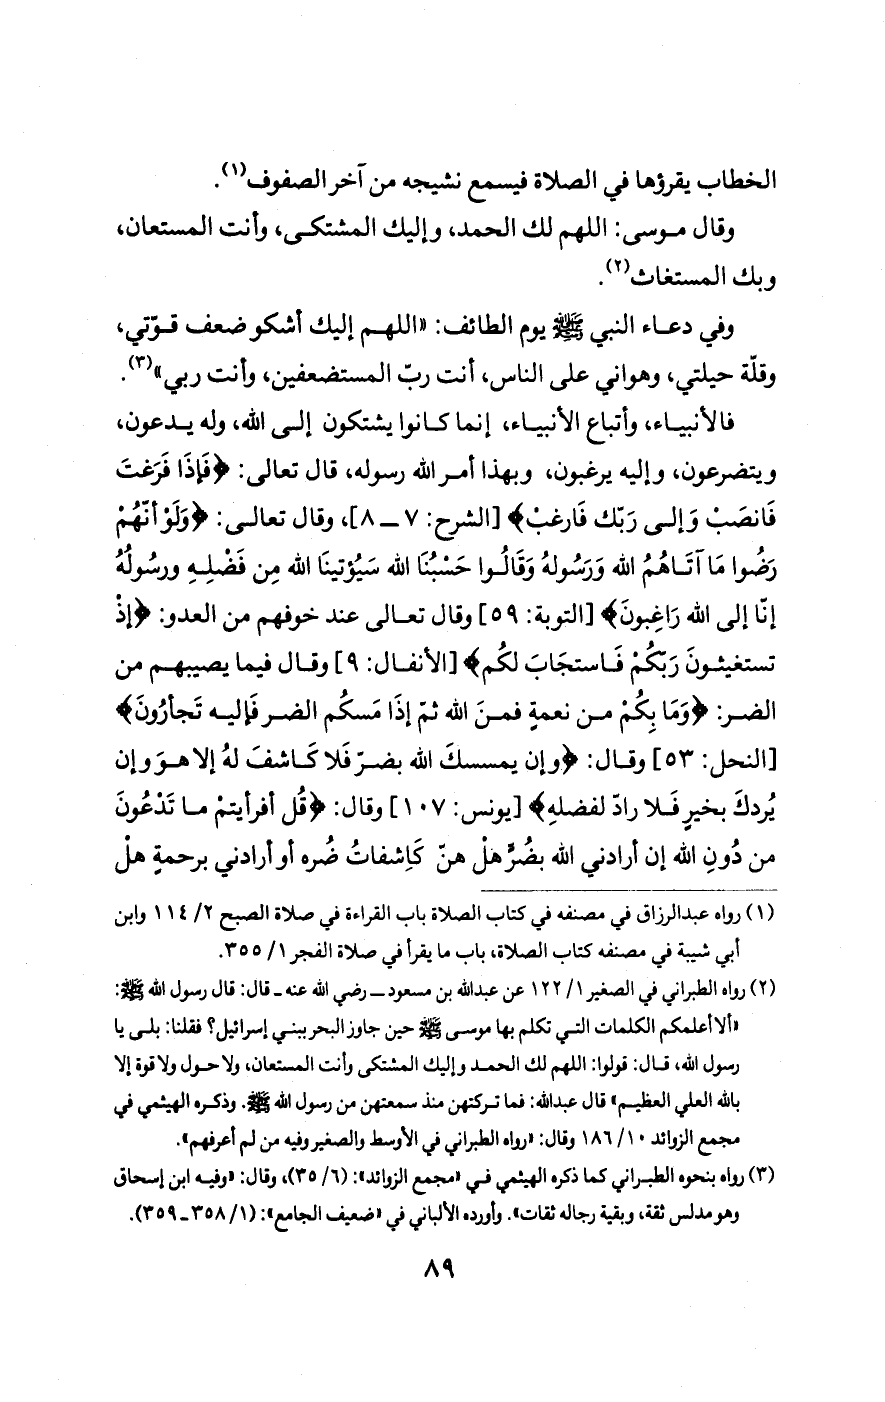 الخطاب يقرؤها في الصلاة فيسمع نشيجه من آخر الصفوف(١).
وقال موسى: اللهم لك الحمد، وإليك المشتكى، وأنت المستعان،
وبك المستغاث(٢).
وفي دعاء النبي ﷺ يوم الطائف: «اللهم إليك أشكو ضعف قوّتي،
وقلّة حيلتي، وهواني على الناس، أنت ربّ المستضعفين، وأنت ربي»(٣).
فالأنبياء، وأتباع الأنبياء، إنما كانوا يشتكون إلى الله، وله يدعون،
ويتضرعون، وإليه يرغبون، وبهذا أمر الله رسوله، قال تعالى: ﴿فَإذَا فَرَغتَ
فَانصَبْ وَإلى رَبّك فَارغبْ﴾ [الشرح: ٧ ـ ٨]، وقال تعالى: ﴿وَلَوْ أنّهُمْ
رَضُوا مَا آتَاهُمُ الله وَرَسُولهُ وَقَالُوا حَسْبُنَا الله سَيُؤتينَا الله مِن فَضْلِهِ ورسُولُهُ
إنّا إلى الله رَاغِبونَ﴾ [التوبة: ٥٩] وقال تعالى عند خوفهم من العدو: ﴿إذْ
تستغيثونَ رَبّكُمْ فَاستجَابَ لكُم﴾ [الأنفال: ٩] وقال فيما يصيبهم من
الضر: ﴿وَمَا بِكُمْ من نعمةٍ فمنَ الله ثمّ إذَا مَسكُم الضر فَإليه تَجأرُونَ﴾
[النحل: ٥٣] وقال: ﴿وإن يمسسكَ الله بضرّ فَلا كَاشفَ لهُ إلا هوَ وإن
يُردكَ بخيرٍ فَلا رادّ لفضلهِ﴾ [يونس: ١٠٧] وقال: ﴿قُل أفرأيتمْ ما تَدْعُونَ
من دُونِ الله إن أرادني الله بضُرٍّ هلْ هنّ كَاشفاتُ ضُره أو أرادني برحمةٍ هلْ
(١) رواه عبدالرزاق في مصنفه في كتاب الصلاة باب القراءة في صلاة الصبح ٢/ ١١٤ وابن
أبي شيبة في مصنفه كتاب الصلاة، باب ما يقرأ في صلاة الفجر ١/ ٣٥٥.
(٢) رواه الطبراني في الصغير ١/ ١٢٢ عن عبدالله بن مسعود ـ رضي الله عنه ـ قال: قال رسول الله ﷺ:
«ألا أعلمكم الكلمات التي تكلم بها موسى ﷺ حين جاوز البحر ببني إسرائيل؟ فقلنا: بلى يا
رسول الله، قال: قولوا: اللهم لك الحمد وإليك المشتكى وأنت المستعان، ولا حول ولا قوة إلا
بالله العلي العظيم» قال عبدالله: فما تركتهن منذ سمعتهن من رسول الله ﷺ. وذكره الهيثمي في
مجمع الزوائد ١٠/ ١٨٦ وقال: «رواه الطبراني في الأوسط والصغير وفيه من لم أعرفهم».
(٣) رواه بنحوه الطبراني كما ذكره الهيثمي في «مجمع الزوائد»: (٦/ ٣٥)، وقال: «وفيه ابن إسحاق
وهو مدلس ثقة، وبقية رجاله ثقات». وأورده الألباني في «ضعيف الجامع»: (١/ ٣٥٨ ـ ٣٥٩).
٨٩